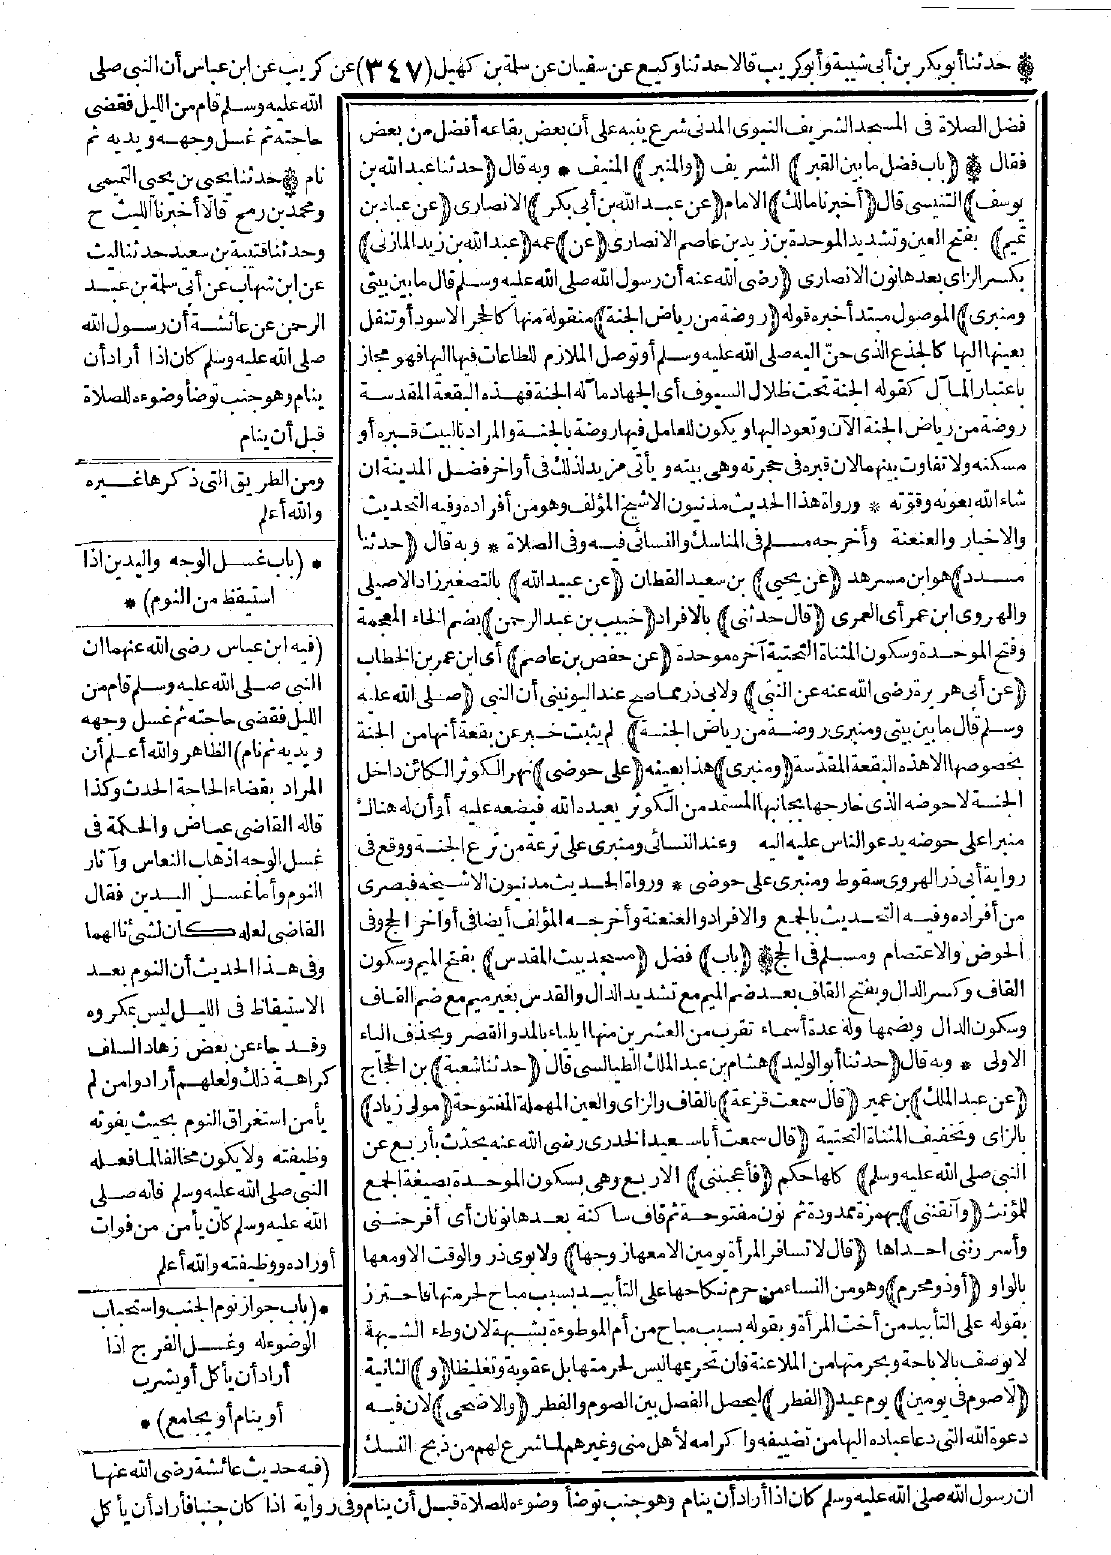 * حدثنا أبو بكر بن أبي شيبة وأبو كريب قالا حدثنا وكيع عن سفيان عن سلمة بن كهيل (٣٤٧) عن كريب عن ابن عباس أن النبي صلى
الله عليه وسلم قام من الليل فقضى
حاجته ثم غسل وجهه ويديه ثم
نام * حدثنا يحيى بن يحيى التميمى
ومحمد بن رمح قالا أخبرنا الليث ح
وحدثنا قتيبة بن سعيد حدثنا ليث
عن ابن شهاب عن أبي سلمة بن عبد
الرحمن عن عائشة أن رسول الله
صلى الله عليه وسلم كان اذا أراد أن
ينام وهو جنب توضأ وضوءه للصلاة
قبل أن ينام
ومن الطريق التى ذكرها غيره
والله أعلم
* (باب غسل الوجه واليدين اذا
استيقظ من النوم) *
(فيه ابن عباس رضى الله عنهما ان
النبى صلى الله عليه وسلم قام من
الليل فقضى حاجته ثم غسل وجهه
ويديه ثم نام) الظاهر والله أعلم أن
المراد بقضاء الحاجة الحدث وكذا
قاله القاضى عياض والحكمة فى
غسل الوجه اذهاب النعاس وآثار
النوم وأما غسل اليدين فقال
القاضى لعله كان لشئ نالهما
وفى هذا الحديث أن النوم بعد
الاستيقاظ فى الليل ليس بمكروه
وقد جاء عن بعض زهاد السلف
كراهة ذلك ولعلهم أرادوا من لم
يأمن استغراق النوم بحيث يفوته
وظيفته ولا يكون مخالفا لما فعله
النبى صلى الله عليه وسلم فانه صلى
الله عليه وسلم كان يأمن من فوات
أوراده ووظيفته والله أعلم
* (باب جواز نوم الجنب واستحباب
الوضوء له وغسل الفرج اذا
أراد أن يأكل أو يشرب
أو ينام أو يجامع) *
(فيه حديث عائشة رضى الله عنها
ان رسول الله صلى الله عليه وسلم كان اذا أراد أن ينام وهو جنب توضأ وضوءه للصلاة قبل أن ينام وفى رواية اذا كان جنبا فأراد أن يأكل
فضل الصلاة فى المسجد الشريف النبوى المدنى شرع ينبه على أن بعض بقاعه أفضل من بعض
فقال * (باب فضل ما بين القبر) الشريف (والمنبر) المنيف * وبه قال (حدثنا عبد الله بن
يوسف) التنيسى قال (أخبرنا مالك) الامام (عن عبد الله بن أبى بكر) الانصارى (عن عباد بن
تميم) بفتح العين وتشديد الموحدة بن زيد بن عاصم الانصارى (عن) عمه (عبد الله بن زيد المازنى)
بكسر الزاى بعدها نون الانصارى (رضى الله عنه أن رسول الله صلى الله عليه وسلم قال ما بين بيتى
ومنبرى) الموصول مبتدأ خبره قوله (روضة من رياض الجنة) منقولة منها كالحجر الاسود أو تنقل
بعينها اليها كالجذع الذى حنّ اليه صلى الله عليه وسلم أو توصل الملازم للطاعات فيها اليها فهو مجاز
باعتبار المآل كقوله الجنة تحت ظلال السيوف أى الجهاد مآله الجنة فهذه البقعة المقدسة
روضة من رياض الجنة الآن وتعود اليها ويكون للعامل فيها روضة بالجنة والمراد بالبيت قبره أو
مسكنه ولا تفاوت بينهما لان قبره فى حجرته وهى بيته ويأتى مزيد لذلك فى أواخر فضل المدينة ان
شاء الله بعونه وقوته * ورواة هذا الحديث مدنيون الا شيخ المؤلف وهو من أفراده وفيه التحديث
والاخبار والعنعنة وأخرجه مسلم فى المناسك والنسائى فيه وفى الصلاة * وبه قال (حدثنا
مسدد) هو ابن مسرهد (عن يحيى) بن سعيد القطان (عن عبيد الله) بالتصغير زاد الاصيلى
والهروى ابن عمر أى العمرى (قال حدثنى) بالافراد (خبيب بن عبد الرحمن) بضم الخاء المعجمة
وفتح الموحدة وسكون المثناة التحتية آخره موحدة (عن حفص بن عاصم) أى ابن عمر بن الخطاب
(عن أبى هريرة رضى الله عنه عن النبى) ولابى ذر مما صح عند اليونينى أن النبى (صلى الله عليه
وسلم قال ما بين بيتى ومنبرى روضة من رياض الجنة) لم يثبت خبر عن بقعة أنها من الجنة
بخصوصها الا هذه البقعة المقدّسة (ومنبرى) هذا بعينه (على حوضى) نهر الكوثر الكائن داخل
الجنة لا حوضه الذى خارجها بجانبها المستمد من الكوثر يعيده الله فيضعه عليه أو أن له هناك
منبرا على حوضه يدعو الناس عليه اليه وعند النسائى ومنبرى على ترعة من ترع الجنة ووقع فى
رواية أبى ذر الهروى سقوط ومنبرى على حوضى * ورواة الحديث مدنيون الا شيخه فبصرى
من أفراده وفيه التحديث بالجمع والافراد والعنعنة وأخرجه المؤلف أيضا فى أواخر الحج وفى
الحوض والاعتصام ومسلم فى الحج * (باب) فضل (مسجد بيت المقدس) بفتح الميم وسكون
القاف وكسر الدال وبفتح القاف بعد ضم الميم مع تشديد الدال والقدس بغير ميم مع ضم القاف
وسكون الدال وبضمها وله عدة أسماء تقرب من العشرين منها ايلياء بالمد والقصر وبحذف الياء
الاولى * وبه قال (حدثنا أبو الوليد) هشام بن عبد الملك الطيالسى قال (حدثنا شعبة) بن الحجاج
(عن عبد الملك) بن عمير (قال سمعت قزعة) بالقاف والزاى والعين المهملة المفتوحة (مولى زياد)
بالزاى وتخفيف المثناة التحتية (قال سمعت أبا سعيد الخدرى رضى الله عنه يحدث بأربع عن
النبى صلى الله عليه وسلم) كلها حكم (فأعجبننى) الاربع وهى بسكون الموحدة بصيغة الجمع
للمؤنث (وآنقننى) بهمزة ممدودة ثم نون مفتوحة ثم قاف ساكنة بعدها نونان أى أفرحننى
وأسررننى احداها (قال لا تسافر المرأة يومين الا معها زوجها) ولابوى ذر والوقت الا ومعها
بالواو (أو ذو محرم) وهو من النساء من حرم نكاحها على التأبيد بسبب مباح لحرمتها فاحترز
بقوله على التأبيد من أخت المرأة وبقوله بسبب مباح من أم الموطوءة بشبهة لان وطء الشبهة
لا يوصف بالاباحة وبحرمتها من الملاعنة فان تحريمها ليس لحرمتها بل عقوبة وتغليظا (و) الثانية
(لا صوم فى يومين) يوم عيد (الفطر) ليحصل الفصل بين الصوم والفطر (والاضحى) لان فيه
دعوة الله التى دعا عباده اليها من تضييفه واكرامه لأهل منى وغيرهم لما شرع لهم من ذبح النسك